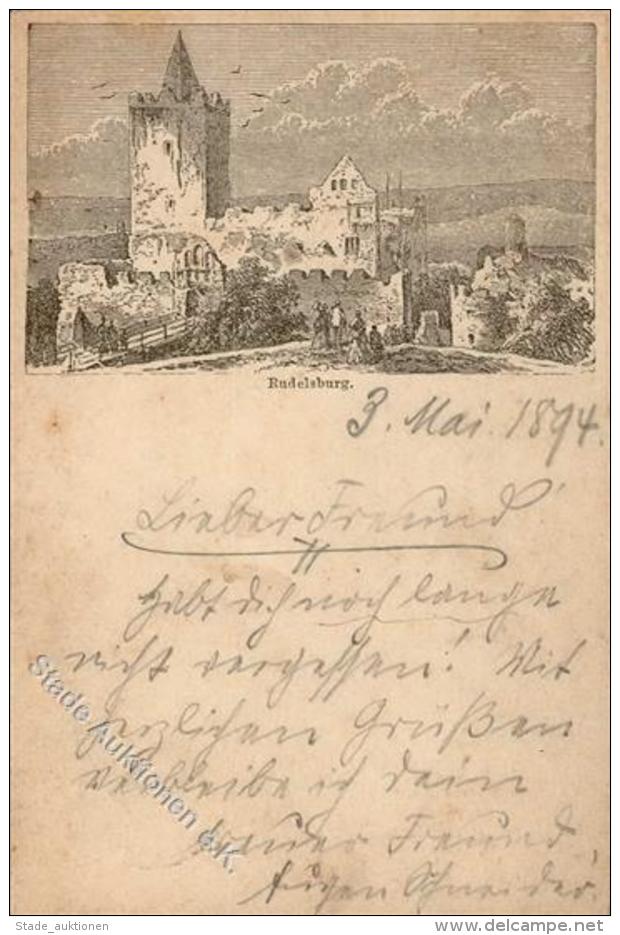 Rudelsburg.
3. Mai. 1894.
Lieber Freund
Habt dich noch lange
nicht vergessen! Mit
herzlichen Grüßen
verbleibe ich dein
treuer Freund,
Eugen Schneider.
Stade Auktionen e.K.
Stade_auktionen
www.delcampe.net